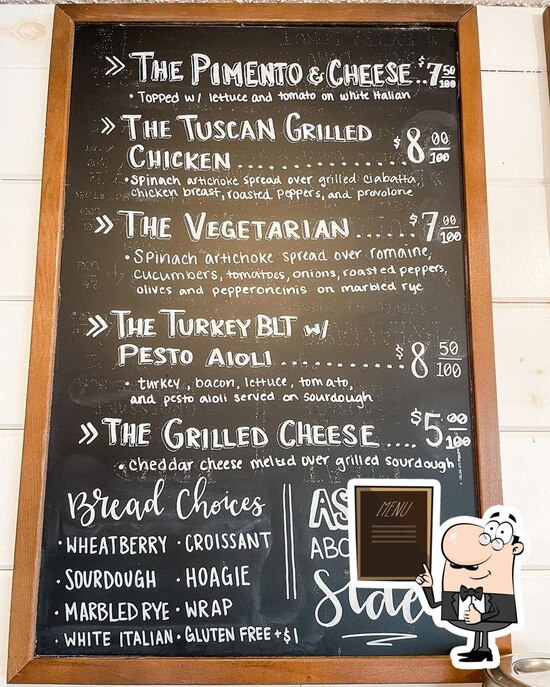 » THE PIMENTO & CHEESE .. $7 50/100
• TOPPED W/ lettuce and tomato on white Italian
» THE TUSCAN GRILLED
CHICKEN ............. $8 00/100
• Spinach artichoke spread over grilled ciabatta,
chicken breast, roasted peppers, and provolone
» THE VEGETARIAN ..... $7 00/100
• Spinach artichoke spread over romaine,
cucumbers, tomatoes, onions, roasted peppers,
olives and pepperoncinis on marbled rye
» THE TURKEY BLT W/
PESTO AIOLI ........... $8 50/100
• turkey, bacon, lettuce, tomato,
and pesto aioli served on sourdough
» THE GRILLED CHEESE .... $5 00/100
• cheddar cheese melted over grilled sourdough
Bread Choices
• WHEATBERRY • CROISSANT
• SOURDOUGH • HOAGIE
• MARBLED RYE • WRAP
• WHITE ITALIAN • GLUTEN FREE +$1
MENU